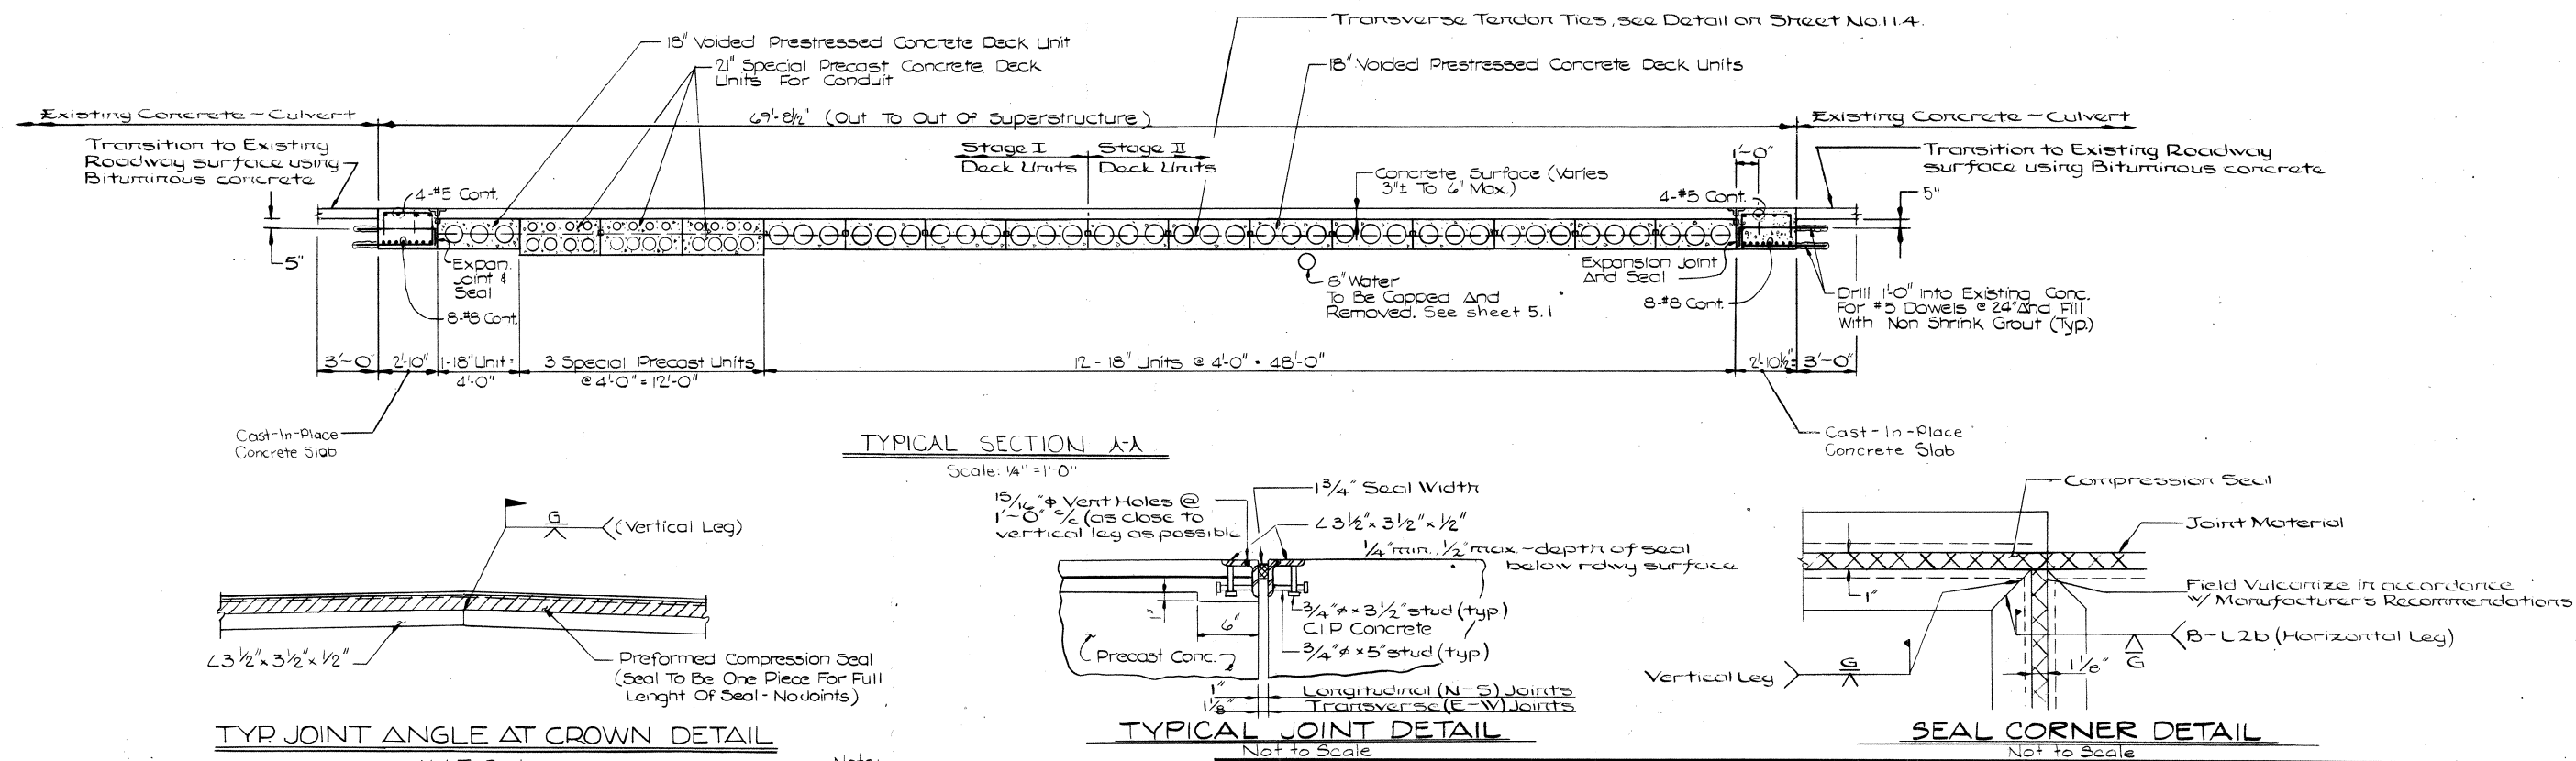 Transverse Tendon Ties, see Detail on Sheet No.11.4.
18" Voided Prestressed Concrete Deck Unit
21" Special Precast Concrete Deck
Units For Conduit
18" Voided Prestressed Concrete Deck Units
Existing Concrete - Culvert
69'-8½" (Out To Out Of Superstructure)
Existing Concrete - Culvert
Transition to Existing
Roadway surface using
Bituminous concrete
Stage I
Deck Units
Stage II
Deck Units
1'-0"
Transition to Existing Roadway
surface using Bituminous concrete
Concrete Surface (Varies
3"± To 6" Max.)
4-#5 Cont.
4-#5 Cont.
5"
5"
Expan.
Joint &
Seal
8-#8 Cont.
8" Water
To Be Capped And
Removed. See sheet 5.1
Expansion Joint
And Seal
8-#8 Cont.
Drill 1'-0" into Existing Conc.
For #5 Dowels @ 24" And Fill
With Non Shrink Grout (Typ.)
3'-0"
2'-10"
1-18" Unit =
4'-0"
3 Special Precast Units
@ 4'-0" = 12'-0"
12 - 18" Units @ 4'-0" = 48'-0"
2'-10½"±
3'-0"
Cast-In-Place
Concrete Slab
Cast-In-Place
Concrete Slab
TYPICAL SECTION A-A
Scale: ¼" = 1'-0"
G
(Vertical Leg)
∠3½"x3½"x½"
Preformed Compression Seal
(Seal To Be One Piece For Full
Lenght Of Seal - No Joints)
TYP. JOINT ANGLE AT CROWN DETAIL
15/16"ϕ Vent Holes @
1'-0" c/c (as close to
vertical leg as possible
1¾" Seal Width
∠3½"x3½"x½"
¼"min. ½"max.-depth of seal
below rdwy surface
1"
6"
¾"ϕ x 3½" stud (typ)
C.I.P. Concrete
¾"ϕ x 5" stud (typ)
Precast Conc.
1" Longitudinal (N-S) Joints
1⅛" Transverse (E-W) Joints
TYPICAL JOINT DETAIL
Not to Scale
Compression Seal
Joint Material
1"
Field Vulcanize in accordance
w/ Manufacturer's Recommendations
B-L2b (Horizontal Leg)
G
Vertical Leg
G
1⅛"
SEAL CORNER DETAIL
Not to Scale
Note: